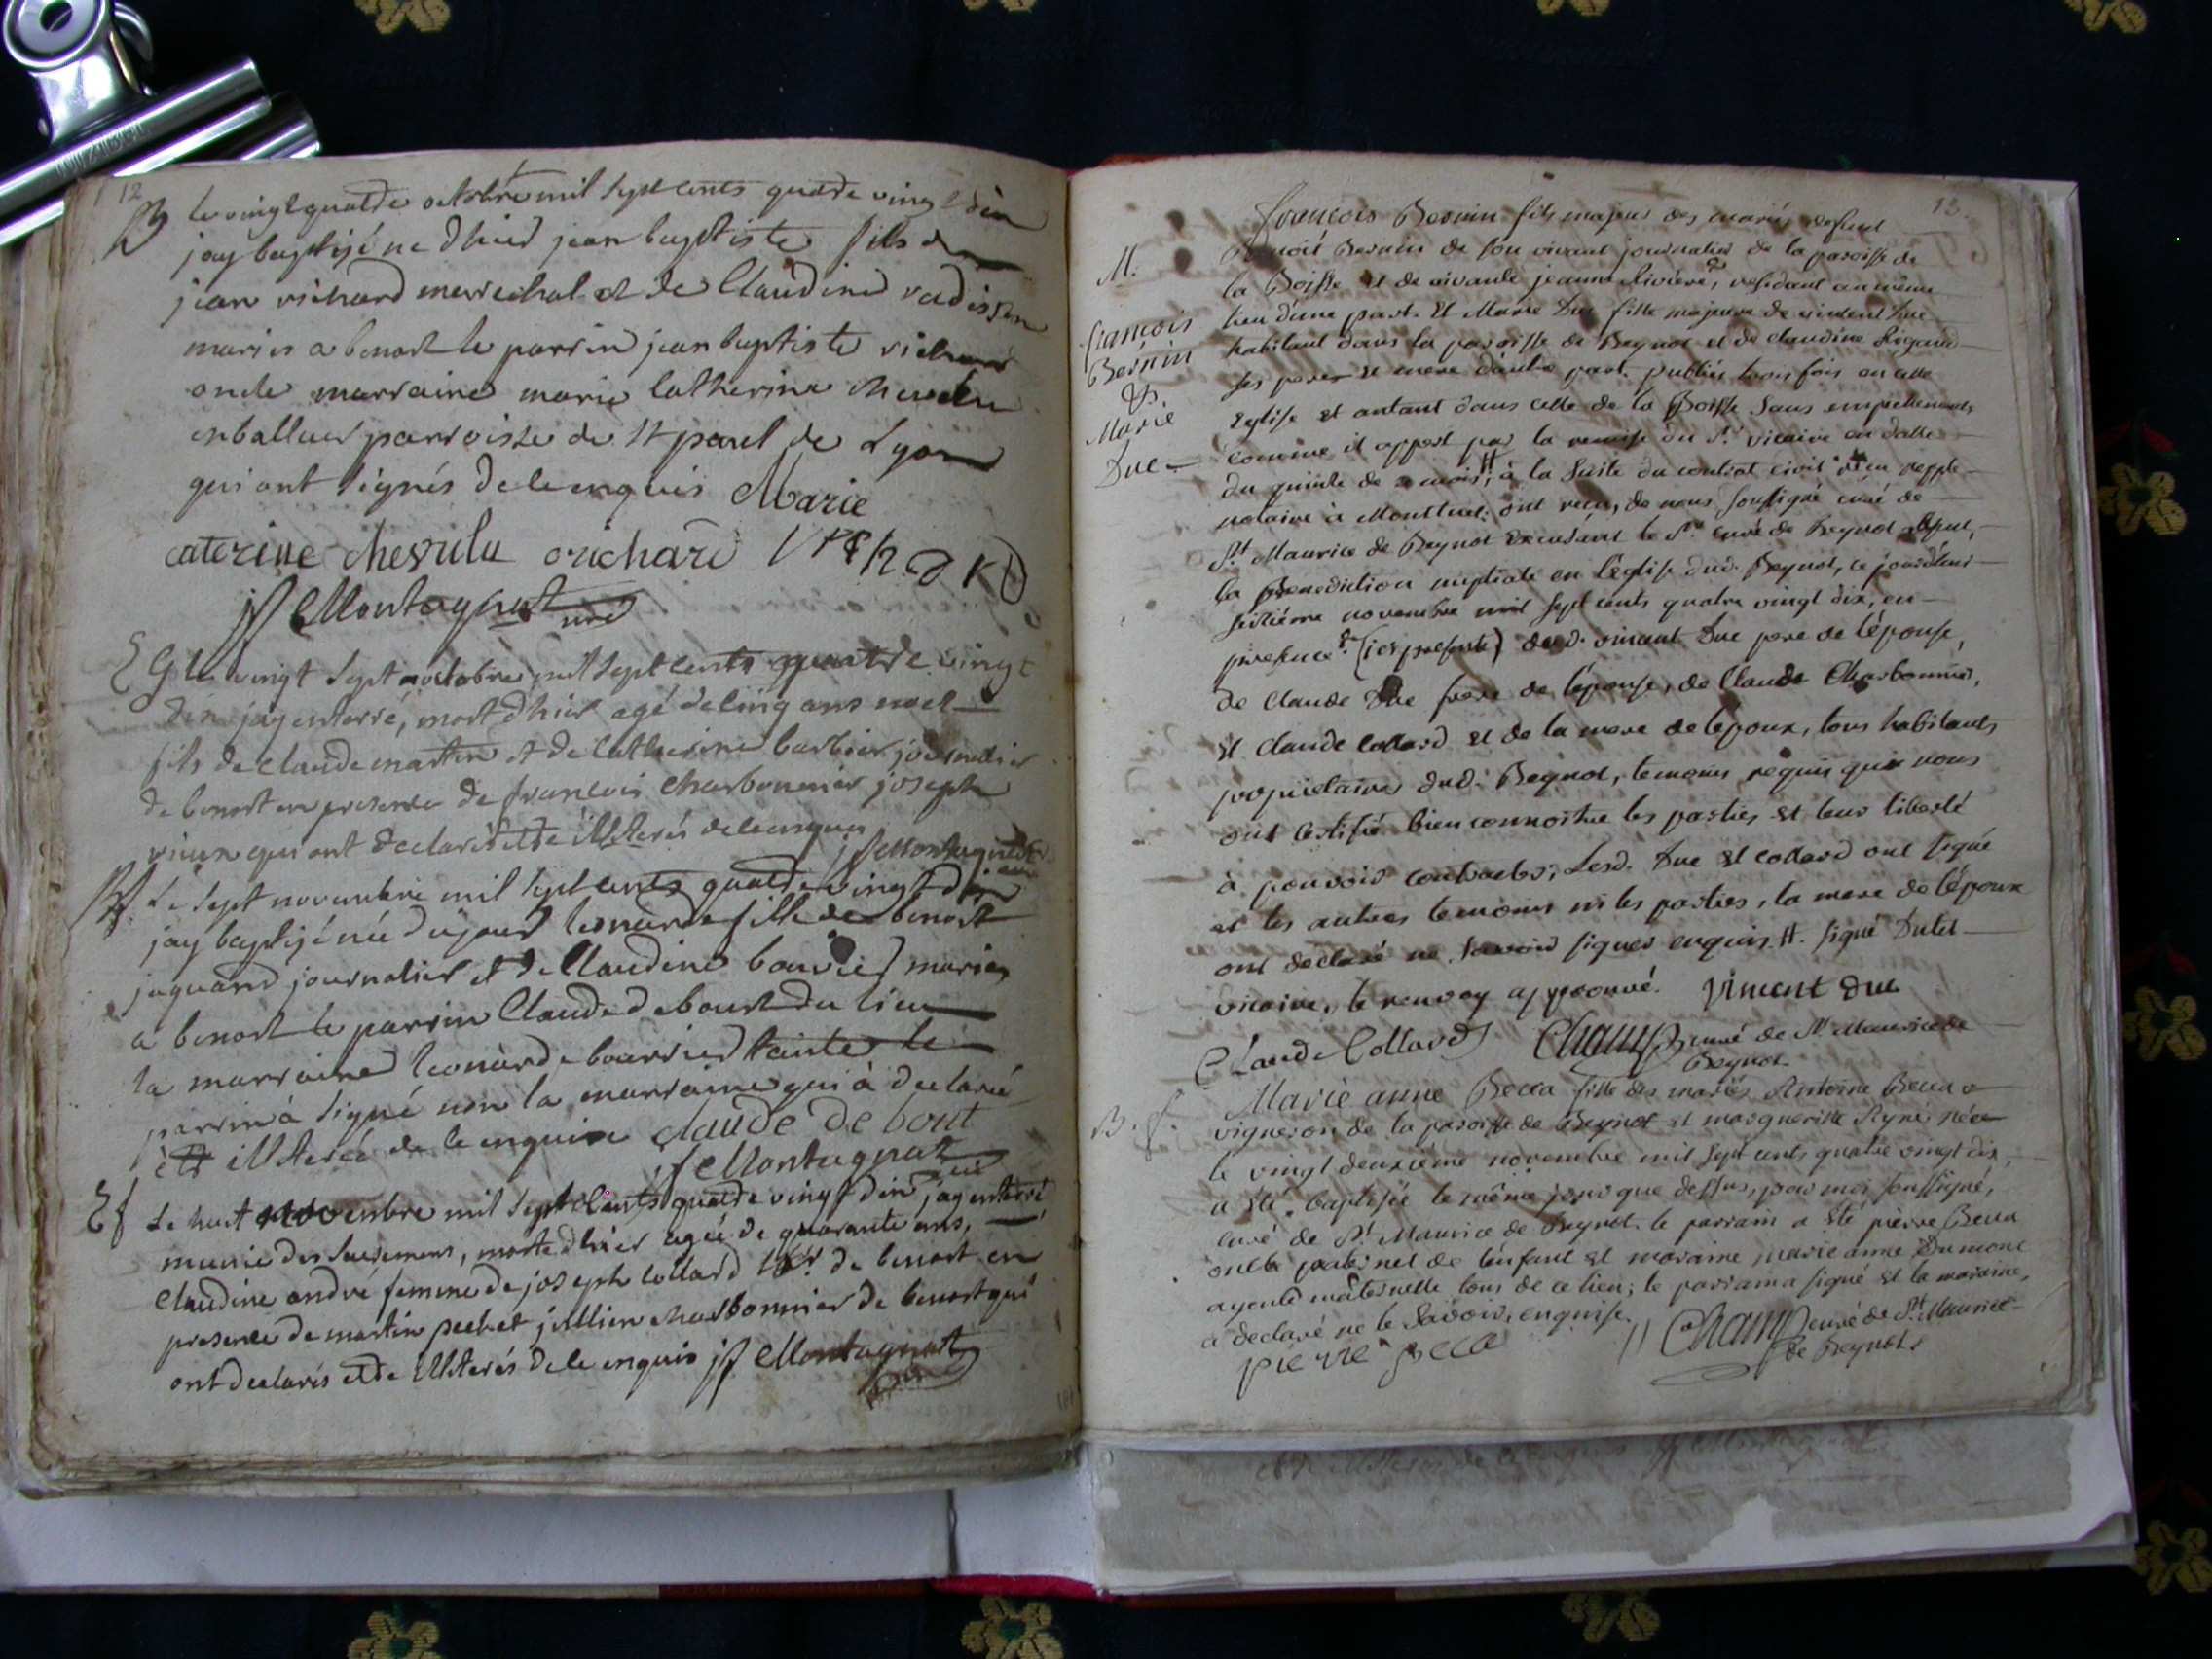 12
B le vingt quatre octobre mil sept cents quatre vingt dix
jay baptisé né d'hier jean baptiste fils de
jean richard marechal et de Claudine
mariés a benost le parrin jean baptiste richard
oncle marraine marie Catherine chevelu
emballeur parroisse de St paul de Lyon
qui ont signés de ce enquis Marie
caterine chevulu orichard
jf Montagnat curé
EG le vingt sept octobre mil sept cents quatre vingt
dix jay enterré, mort d'hier agé de cinq ans noel
fils de claude martin et de Catherine barbier journalier
de benost en presence de francois charbonnier joseph
vieux qui ont declarés être illiterés de ce enquis
jf Montagnat curé
Bf. Le sept novembre mil sept cents quatre vingt dix
jay baptisé née du jour leonarde fille de benost
jaquand journalier et de Claudine bouvier mariés
a benost le parrin Claude debourt du lieu
la marraine leonarde bourrier tante le
parrin à signé non la marraine qui à declaré
être illiterée de ce enquise claude de bont
jf Montagnat curé
Ef Le huit novembre mil sept cents quatre vingt dix jay enterré
munie des sacremens, morte d'hier agée de quarante ans,
Claudine andré femme de joseph collard de benost en
presence de martin pechet jullien charbonnier de benost qui
ont declarés être illiterés de ce enquis jf Montagnat
13.
françois Bernin fils majeur des mariés defunt
Benoit Bernin de son vivant journalier de la paroisse de
M.
la Boisse et de vivante jeanne Riviere, residant au même
françois
Bernin
&
Marie
Duc
lieu d'une part. Et Marie Duc fille majeure de vincent Duc
habitant dans la paroisse de Beynot et de claudine Rigaud
ses pere et mere d'autre part. publiés trois fois en cette
Eglise et autant dans celle de la Boisse sans empechement,
comme il appert par la remise du Sr. vicaire en datte
du quinze de ce mois, # à la suite du contrat civil recu
notaire à Montluel: ont reçu, de nous soussigné curé de
St. Maurice de Beynot le Sr. curé de Beynot
la Benediction nuptiale en l'église dud. Beynot, ce jourd'hui
seizième novembre mil sept cents quatre vingt dix, en
presence dud. vincent Duc pere de l'épouse,
de claude Duc frere de l'épouse, de Claude Charbonnier,
et claude collard et de la mere de l'époux, tous habitants
propriétaires dud. Beynot, temoins requis qui nous
ont certifié bien connoitre les parties et leur liberté
à pouvoir contracter; Lesd. Duc et collard ont signé
et les autres temoins ni les parties, la mere de l'époux
ont declaré ne savoir signer enquis. #. signé Dutel
vicaire, le renvoy approuvé. Vincent Duc
Claude Collard Champ curé de St. Maurice de
Beynot.
B. f.
Marie anne Becca fille des mariés Antoine Becca
vigneron de la paroisse de Beynot et marguerite née
le vingt deuxième novembre mil sept cents quatre vingt dix,
a été baptisée le même jour que dessus, par moi soussigné,
curé de St Maurice de Beynot. le parrain a été pierre Becca
oncle paternel de l'enfant et maraine marie anne Dumont
ayeule maternelle tous de ce lieu; le parrain a signé et la maraine,
a déclaré ne le savoir, enquise.
pierre beca Champ curé de St. Maurice
de Beynot.